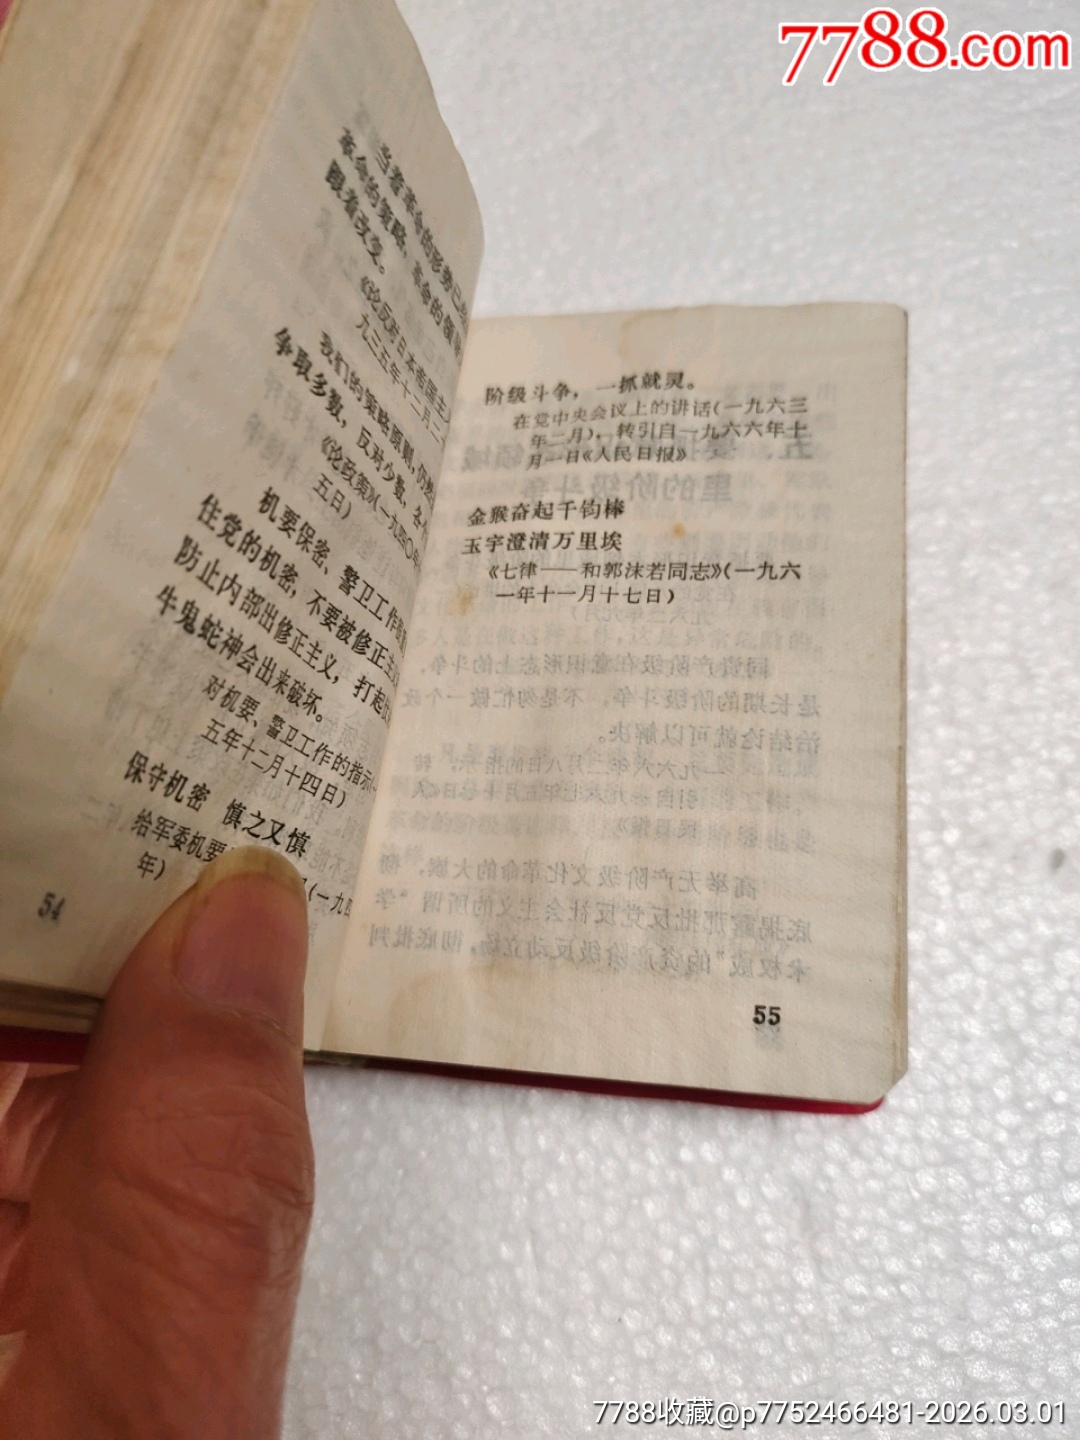 7788.com
当着革命的形势已
革命的策略，革命的领
跟着改变。
《论反对日本帝国主
九三五年十二月二
我们的策略原则，仍然
争取多数，反对少数，各个
《论政策》（一九四〇年
五日）
机要保密、警卫工作
住党的机密，不要被修正主
防止内部出修正主义，打起
牛鬼蛇神会出来破坏。
对机要、警卫工作的指示（一
五年十二月十四日）
保守机密 慎之又慎
给军委机要
（一九四
年）
54
阶级斗争，一抓就灵。
在党中央会议上的讲话（一九六三
年二月），转引自一九六六年十
月一日《人民日报》
金猴奋起千钧棒
玉宇澄清万里埃
《七律——和郭沫若同志》（一九六
一年十一月十七日）
55
7788收藏@p7752466481-2026.03.01